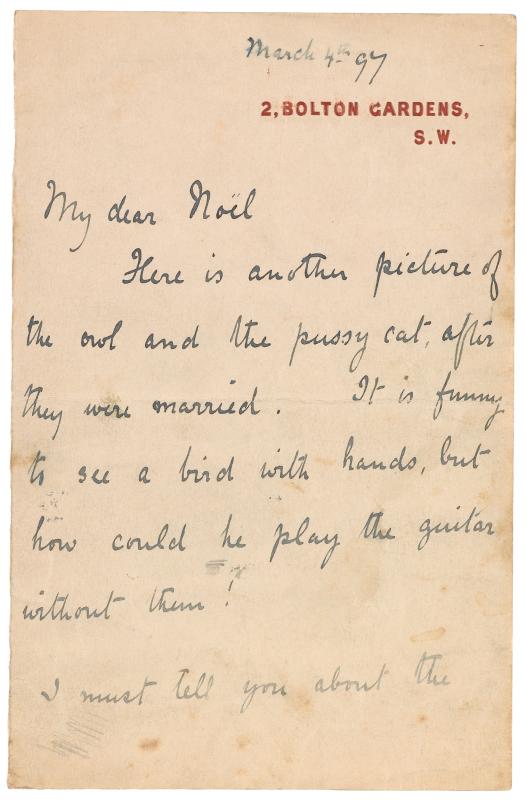 March 4th 97
2, BOLTON GARDENS,
S.W.
My dear Noël
Here is another picture of
the owl and the pussy cat, after
they were married. It is funny
to see a bird with hands, but
how could he play the guitar
without them!
I must tell you about the